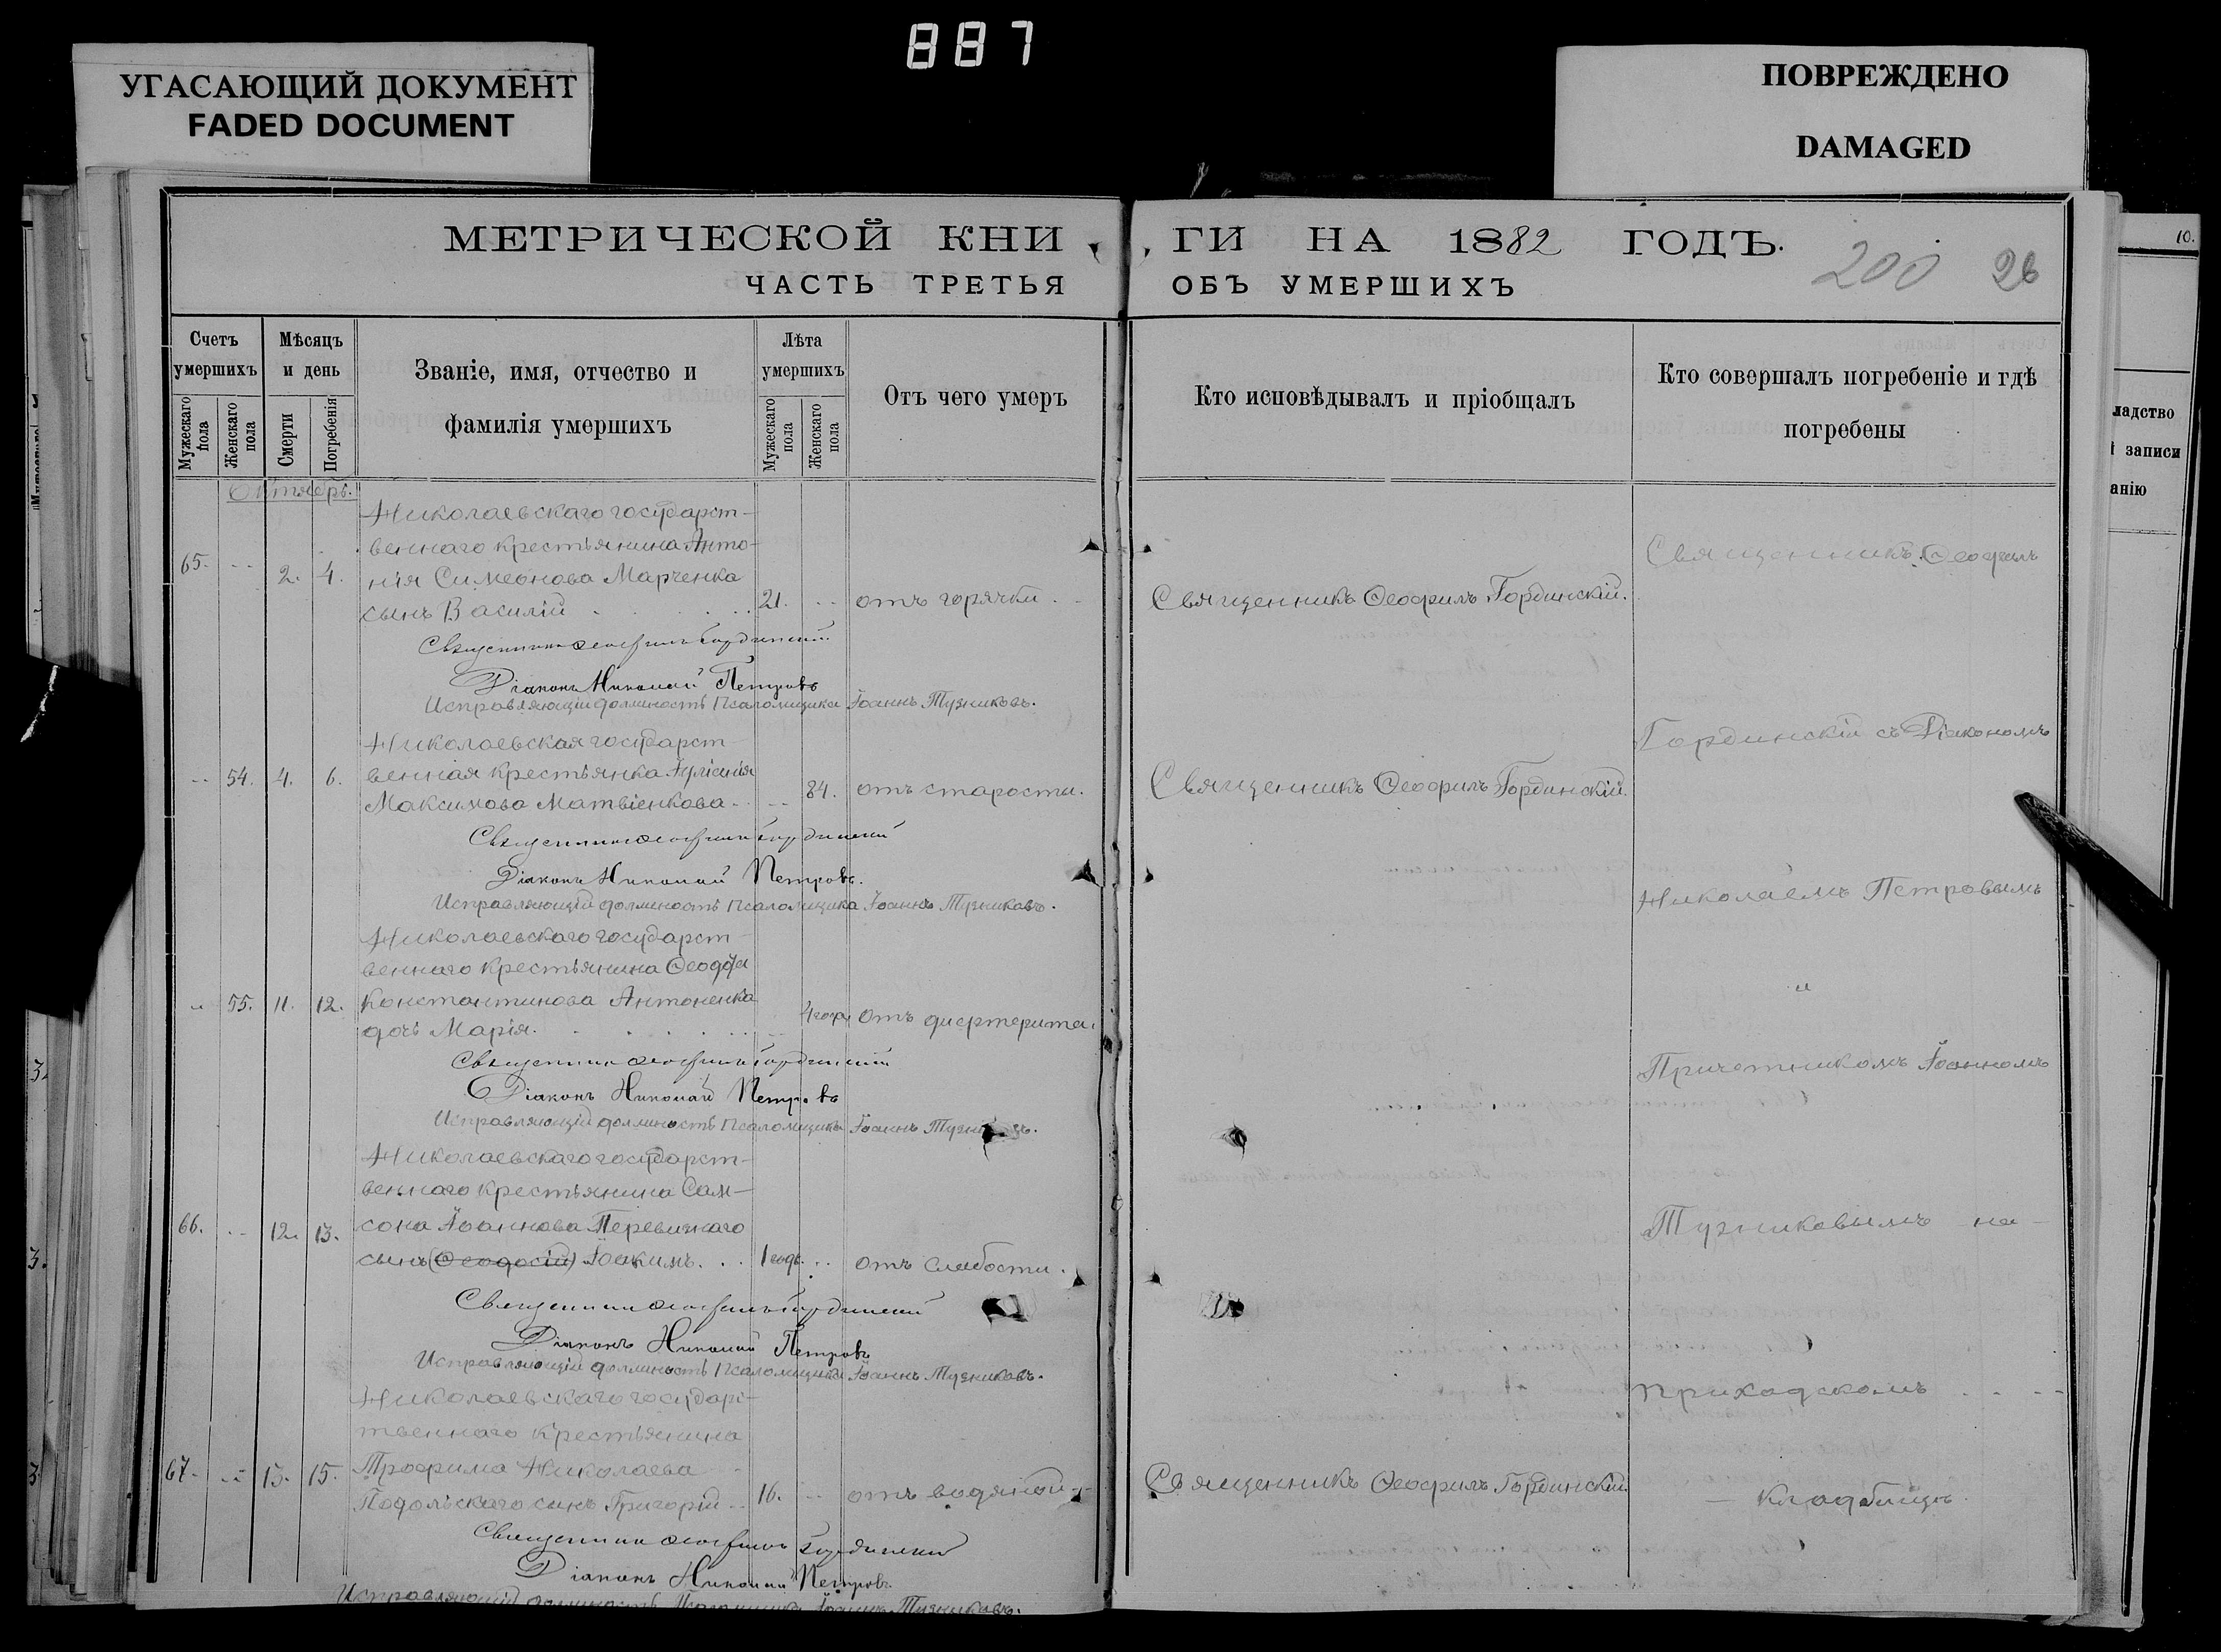 887
УГАСАЮЩИЙ ДОКУМЕНТ
FADED DOCUMENT
ПОВРЕЖДЕНО
DAMAGED
МЕТРИЧЕСКОЙ КНИ
ЧАСТЬ ТРЕТЬЯ
ГИ НА 1882 ГОДЪ.
ОБЪ УМЕРШИХЪ
200 26
10.
Счетъ умершихъ
Мужескаго пола
Женскаго пола
Мѣсяцъ и день
Смерти
Погребенія
Званіе, имя, отчество и
фамилія умершихъ
Лѣта умершихъ
Мужескаго пола
Женскаго пола
Отъ чего умеръ
Кто исповѣдывалъ и пріобщалъ
Кто совершалъ погребеніе и гдѣ
погребены
ладство
записи
анію
Октябрь.
Николаевскаго государст-
веннаго крестьянина Анто-
65. -- 2. 4. нія Симеонова Марченка
сынъ Василій 21. -- отъ горячки. Священникъ Ѳеофилъ Гординскій.
Священникъ Ѳеофилъ Гординскій
Діаконъ Николай Петровъ
Исправляющій должность Псаломщика Іоаннъ Тузниковъ.
Николаевская государст-
-- 54. 4. 6. венная крестьянка Іуліанія
Максимова Матвіенкова -- 84. отъ старости. Священникъ Ѳеофилъ Гординскій.
Священникъ Ѳеофилъ Гординскій
Діаконъ Николай Петровъ.
Исправляющій должность Псаломщика Іоаннъ Тузниковъ.
Николаевскаго государст-
веннаго крестьянина
55. 11. 12. Константинова Антоненка
дочь Марія. 4 года отъ дифтерита.
Священникъ Ѳеофилъ Гординскій
Діаконъ Николай Петровъ
Исправляющій должность Псаломщика Іоаннъ
Николаевскаго государст-
веннаго крестьянина Сам-
66. -- 12. 13. сона Іоаннова
сынъ (Ѳеодосій) Іоакимъ. 1 годъ. отъ слабости.
Священникъ Ѳеофилъ Гординскій
Діаконъ Николай Петровъ
Исправляющій должность Псаломщика Іоаннъ Тузниковъ.
Николаевскаго государс-
твеннаго крестьянина
67. -- 13. 15. Трофима Николаева
Подольскаго сынъ Григорій -- 16. -- отъ водяной -- Священникъ Ѳеофилъ Гординскій.
Священникъ Ѳеофилъ Гординскій
Діаконъ Николай Петровъ.
Исправляющій должность Псаломщика Іоаннъ Тузниковъ.
Священникъ Ѳеофилъ
Гординскій съ Діакономъ
Николаемъ Петровымъ
и
Причетникомъ Іоанномъ
Тузниковымъ на
приходскомъ
кладбищѣ.